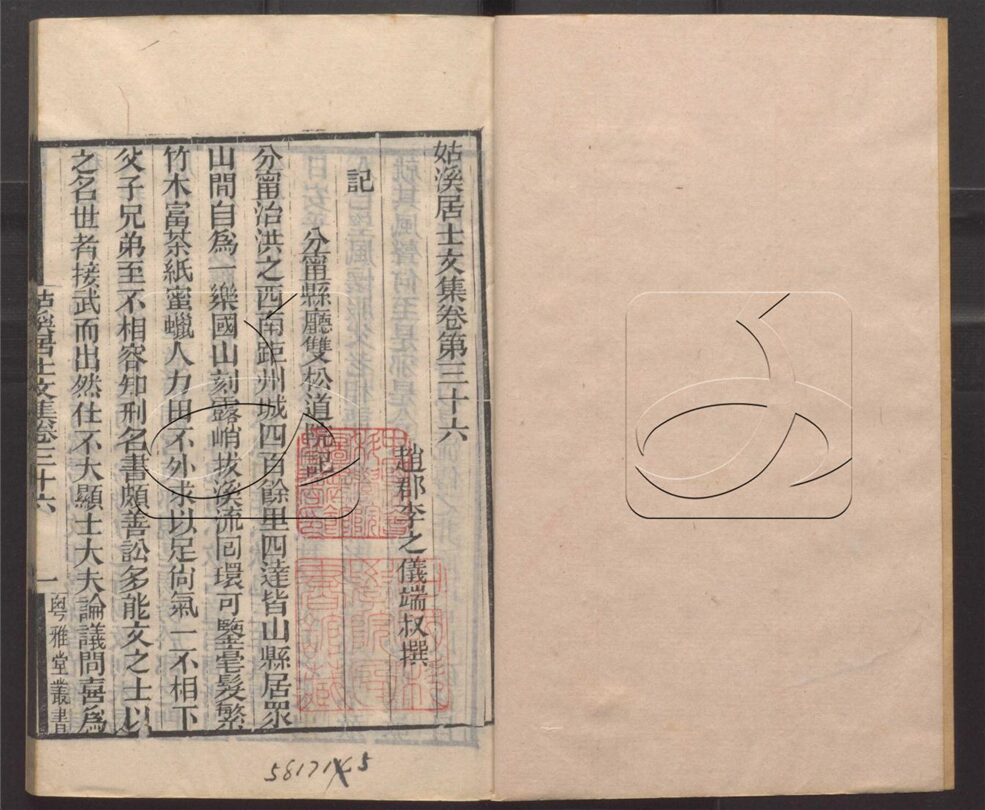 姑溪居士文集卷第三十六
趙郡李之儀端叔撰
記
分甯縣廳雙松道院記
分甯治洪之西南距州城四百餘里四達皆山縣居眾
山間自為一樂國山刻露峭拔溪流囘環可鑒毫髮繁
竹木富茶紙蜜蠟人力田不外求以足尙氣一不相下
父子兄弟至不相容知刑名書頗善訟多能文之士以
之名世者接武而出然仕不大顯士大夫論議問喜為
姑溪居士文集卷三十六
一
粵雅堂叢書
58171 5